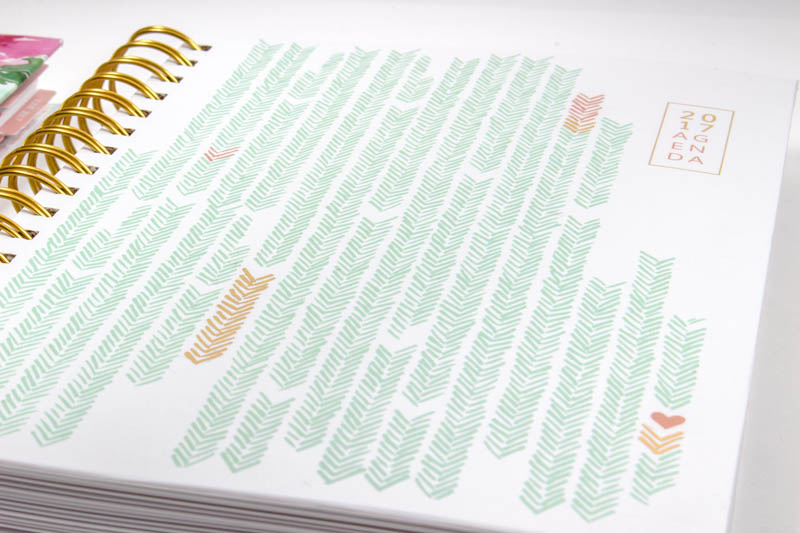 20
17
AG
EN
DA